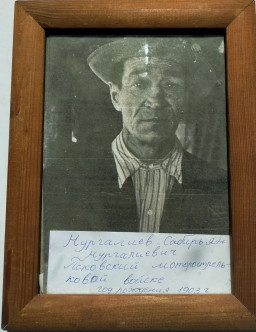 Нургалиев Сабирьян
Нургалиевич
Псковский мотострель-
ковой войске
год рождения 1903 г